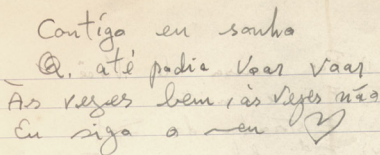 Contigo eu sonho
Q. até podia voar voar
Às vezes bem, às vezes não
Eu sigo o meu ♡